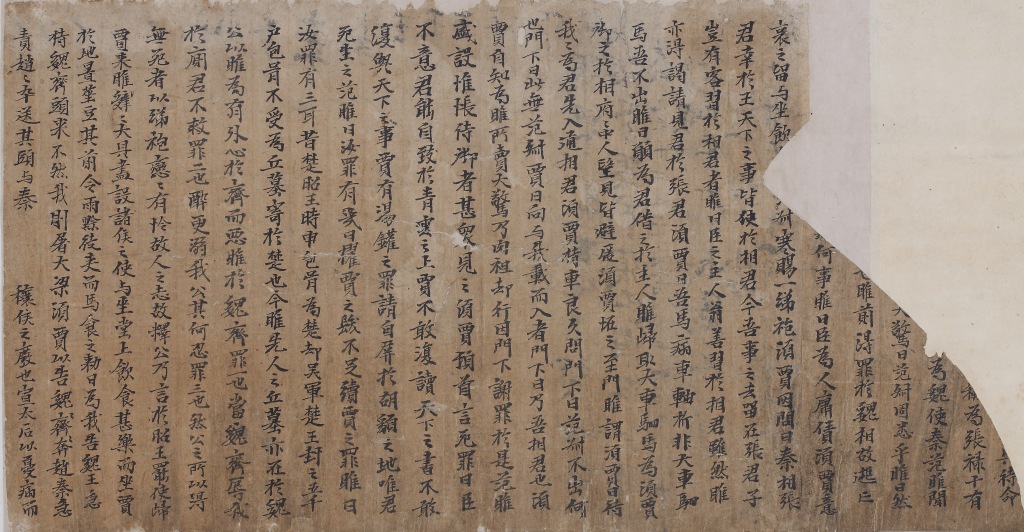 其待令
稱為張祿十有
為魏使秦范睢聞
大驚曰范叔固恙乎睢曰然
也睢前得罪於魏相故逃亡
何事睢曰臣為人庸賃須賈意
哀之留与坐飲叔寒賜一綈袍須賈因問曰秦相張
君幸於王天下之事皆使於相君今吾事之去留在張君子
豈有客習於相君者睢曰臣之主人翁善習於相君雖然睢
亦得謁請見君於張君須賈曰吾馬病車軸折非大車駟
馬吾不出睢曰願為君借之於主人睢歸取大車駟馬為須賈
御之於相府中人望見皆避匿須賈恠之至門睢謂須賈曰待
我之為君先入通相君須賈待車良久問門下曰范叔不出何
也門下曰此無范叔賈曰向与我載而入者門下曰乃吾相君也須
賈自知為睢所賣大驚乃肉袒却行因門下謝罪於是范睢
盛設惟張待御者甚衆見之須賈頓首言死罪曰臣
不意君能自致於青雲之上賈不敢復讀天下之書不敢
復與天下之事賈有湯鑊之罪請自屏於胡貊之地唯君
死生之范睢曰汝罪有幾曰擢賈之髮不足續賈之罪睢曰
汝罪有三耳昔楚昭王時申包胥為楚却吴軍楚王封之五千
户包胥不受為丘墓寄於楚也今睢先人之丘墓亦在於魏
公以睢為有外心於齊而惡睢於魏齊罪一也當魏齊辱我
於廁君不救罪二也醉更溺我公其何忍罪三也然公之所以得
無死者以綈袍戀之有怜故人之志故釋公乃言於昭王罷使歸
賈来睢辤之大具盡設諸侯之使与坐堂上飲食甚樂而坐賈
於地置莝豆其前令兩黥徒夾而馬食之勑曰為我告魏王急
持魏齊頭来不然我則屠大梁須賈以告魏齊奔趙秦急
責趙之卒送其頭与秦 穰侯之廢也宣太后以憂病而